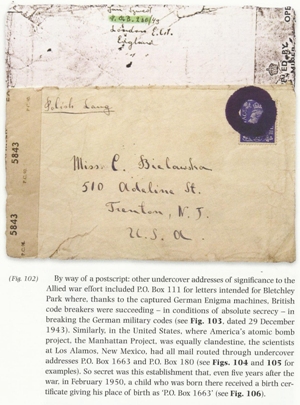 P.O.B. 260/43
London E.C.1.
England
OPE
Polish Lang
5843
P.C.90
5843
P.C.90
Miss C. Bielawska
510 Adeline St.
Trenton, N.J.
U.S.A.
(Fig. 102)
By way of a postscript: other undercover addresses of significance to the
Allied war effort included P.O. Box 111 for letters intended for Bletchley
Park where, thanks to the captured German Enigma machines, British
code breakers were succeeding – in conditions of absolute secrecy – in
breaking the German military codes (see Fig. 103, dated 29 December
1943). Similarly, in the United States, where America's atomic bomb
project, the Manhattan Project, was equally clandestine, the scientists
at Los Alamos, New Mexico, had all mail routed through undercover
addresses P.O. Box 1663 and P.O. Box 180 (see Figs. 104 and 105 for
examples). So secret was this establishment that, even five years after the
war, in February 1950, a child who was born there received a birth cer-
tificate giving his place of birth as 'P.O. Box 1663' (see Fig. 106).